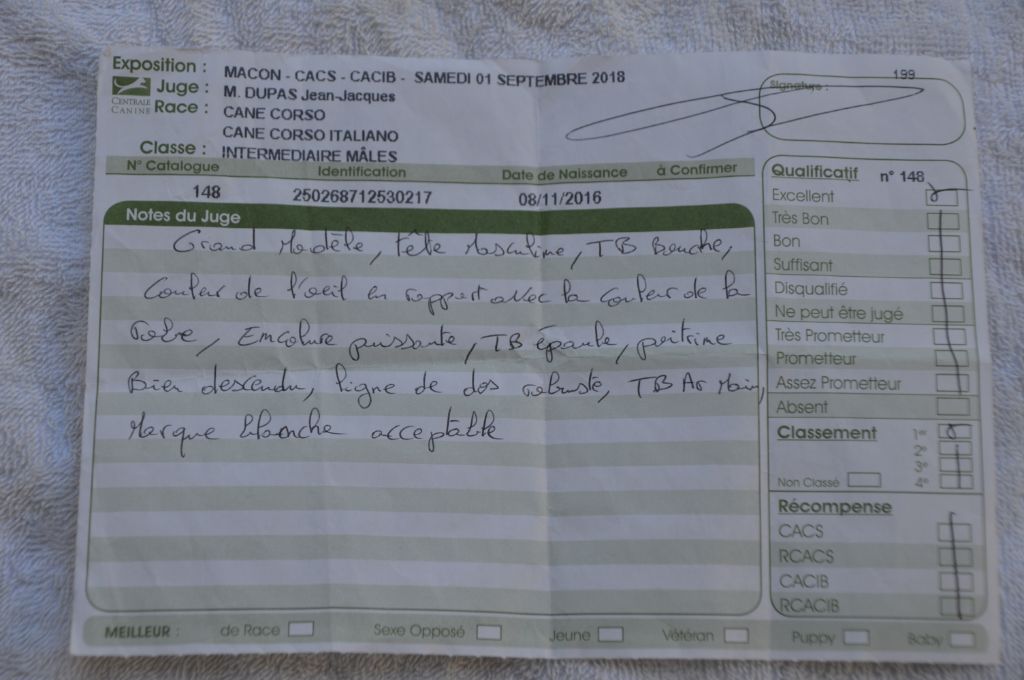 Exposition : MACON - CACS - CACIB - SAMEDI 01 SEPTEMBRE 2018
199
Juge : M. DUPAS Jean-Jacques
Signature :
CENTRALE CANINE
Race : CANE CORSO
CANE CORSO ITALIANO
Classe : INTERMEDIAIRE MÂLES
N° Catalogue Identification Date de Naissance à Confirmer
148 250268712530217 08/11/2016
Notes du Juge
Grand Modèle, tête Masculine, TB Bouche,
Couleur de l'oeil en rapport avec la couleur de la
robe, Encolure puissante, TB épaule, poitrine
Bien descendu, ligne de dos robuste, TB Ar Main,
Marque blanche acceptable
Qualificatif n° 148
Excellent
Très Bon
Bon
Suffisant
Disqualifié
Ne peut être jugé
Très Prometteur
Prometteur
Assez Prometteur
Absent
Classement 1er
2e
3e
Non Classé 4e
Récompense
CACS
RCACS
CACIB
RCACIB
MEILLEUR : de Race Sexe Opposé Jeune Vétéran Puppy Baby